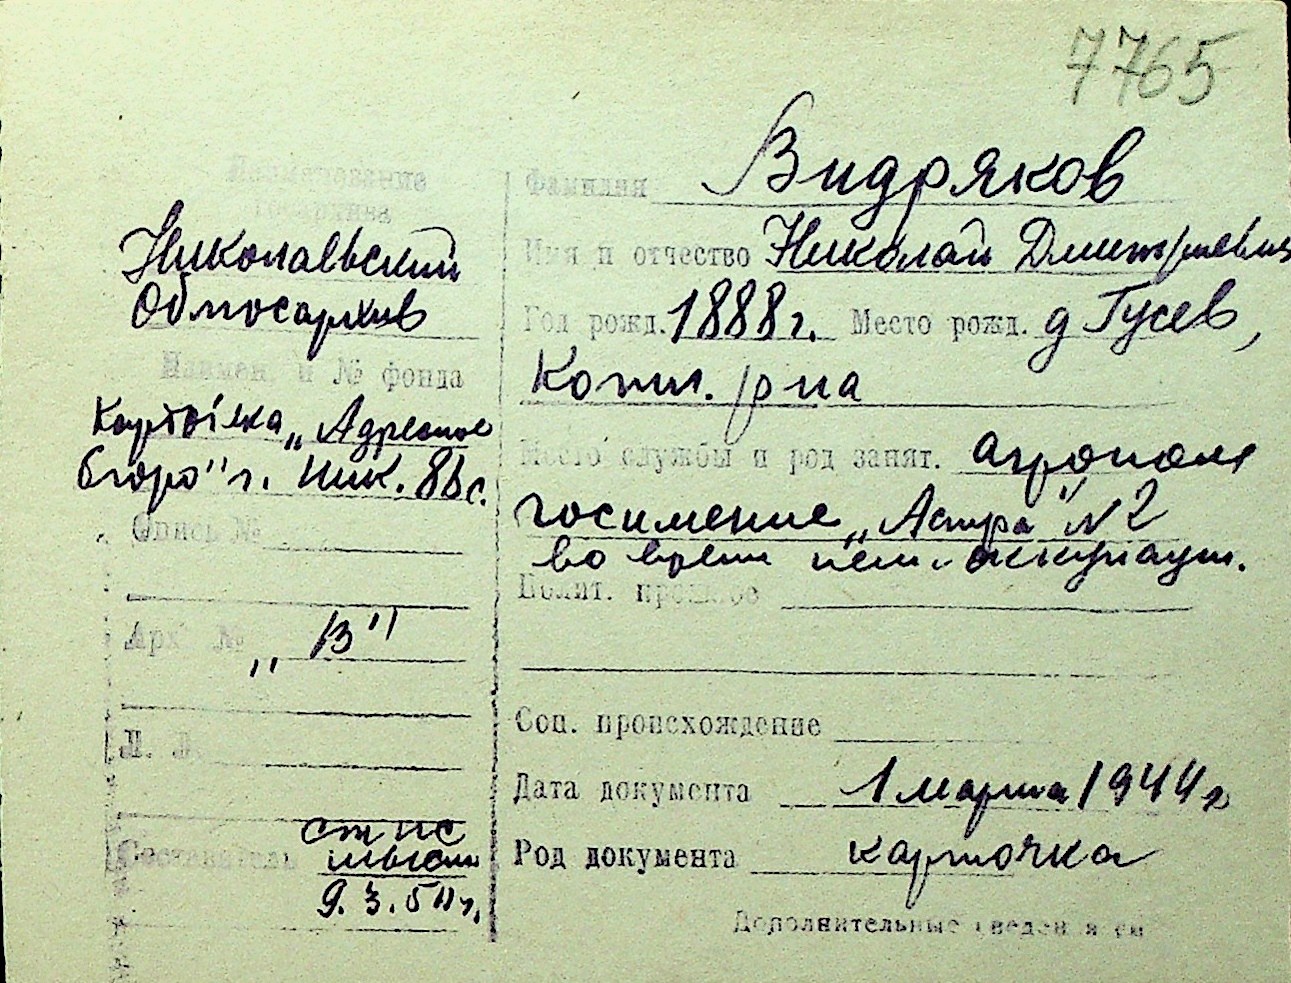 7765
Наименование
госархива
Николаевский
Облгосархив
Наимен. и № фонда
Картотека „Адресное
бюро" г. Ник. 8Вс.
Опись №
Арх. № „В"
Л. Л.
Составитель ст нс
9.3.50 г.
Фамилия Видряков
Имя и отчество Николай Дмитриевич
Год рожд. 1888 г. Место рожд. д Гусев,
р на
Место службы и род занят. агроном
госимение „Астра" № 2
во время нем. оккупации.
Полит. прошлое
Соц. происхождение
Дата документа 1 марта 1944 г
Род документа карточка
Дополнительные сведения см